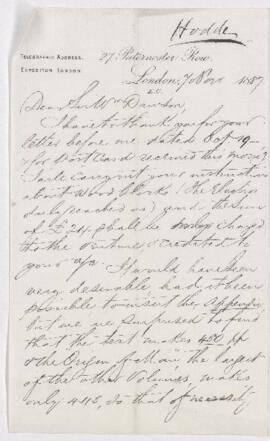 Hodder
TELEGRAPHIC ADDRESS,
EXPEDITOR LONDON.
27, Paternoster Row,
London, 7 Nov 1887
E.C.
Dear Sir Wm Dawson,
I have to thank you for your
letter before me dated Oct 19-
& for Post Card received this morng.
I will carry out your instructions
about Wood Blocks (the Electros
duly reached us) and the sum
of £24 shall be charged
to the Venture & credited to
your a/c.
It would have been
very desirable had it been
possible to insert the Appendix
but we are surprised to find
that the text makes 480 pp
& the Origin of Man, the largest
of the other Volumes, makes
only 445, so that of necessity